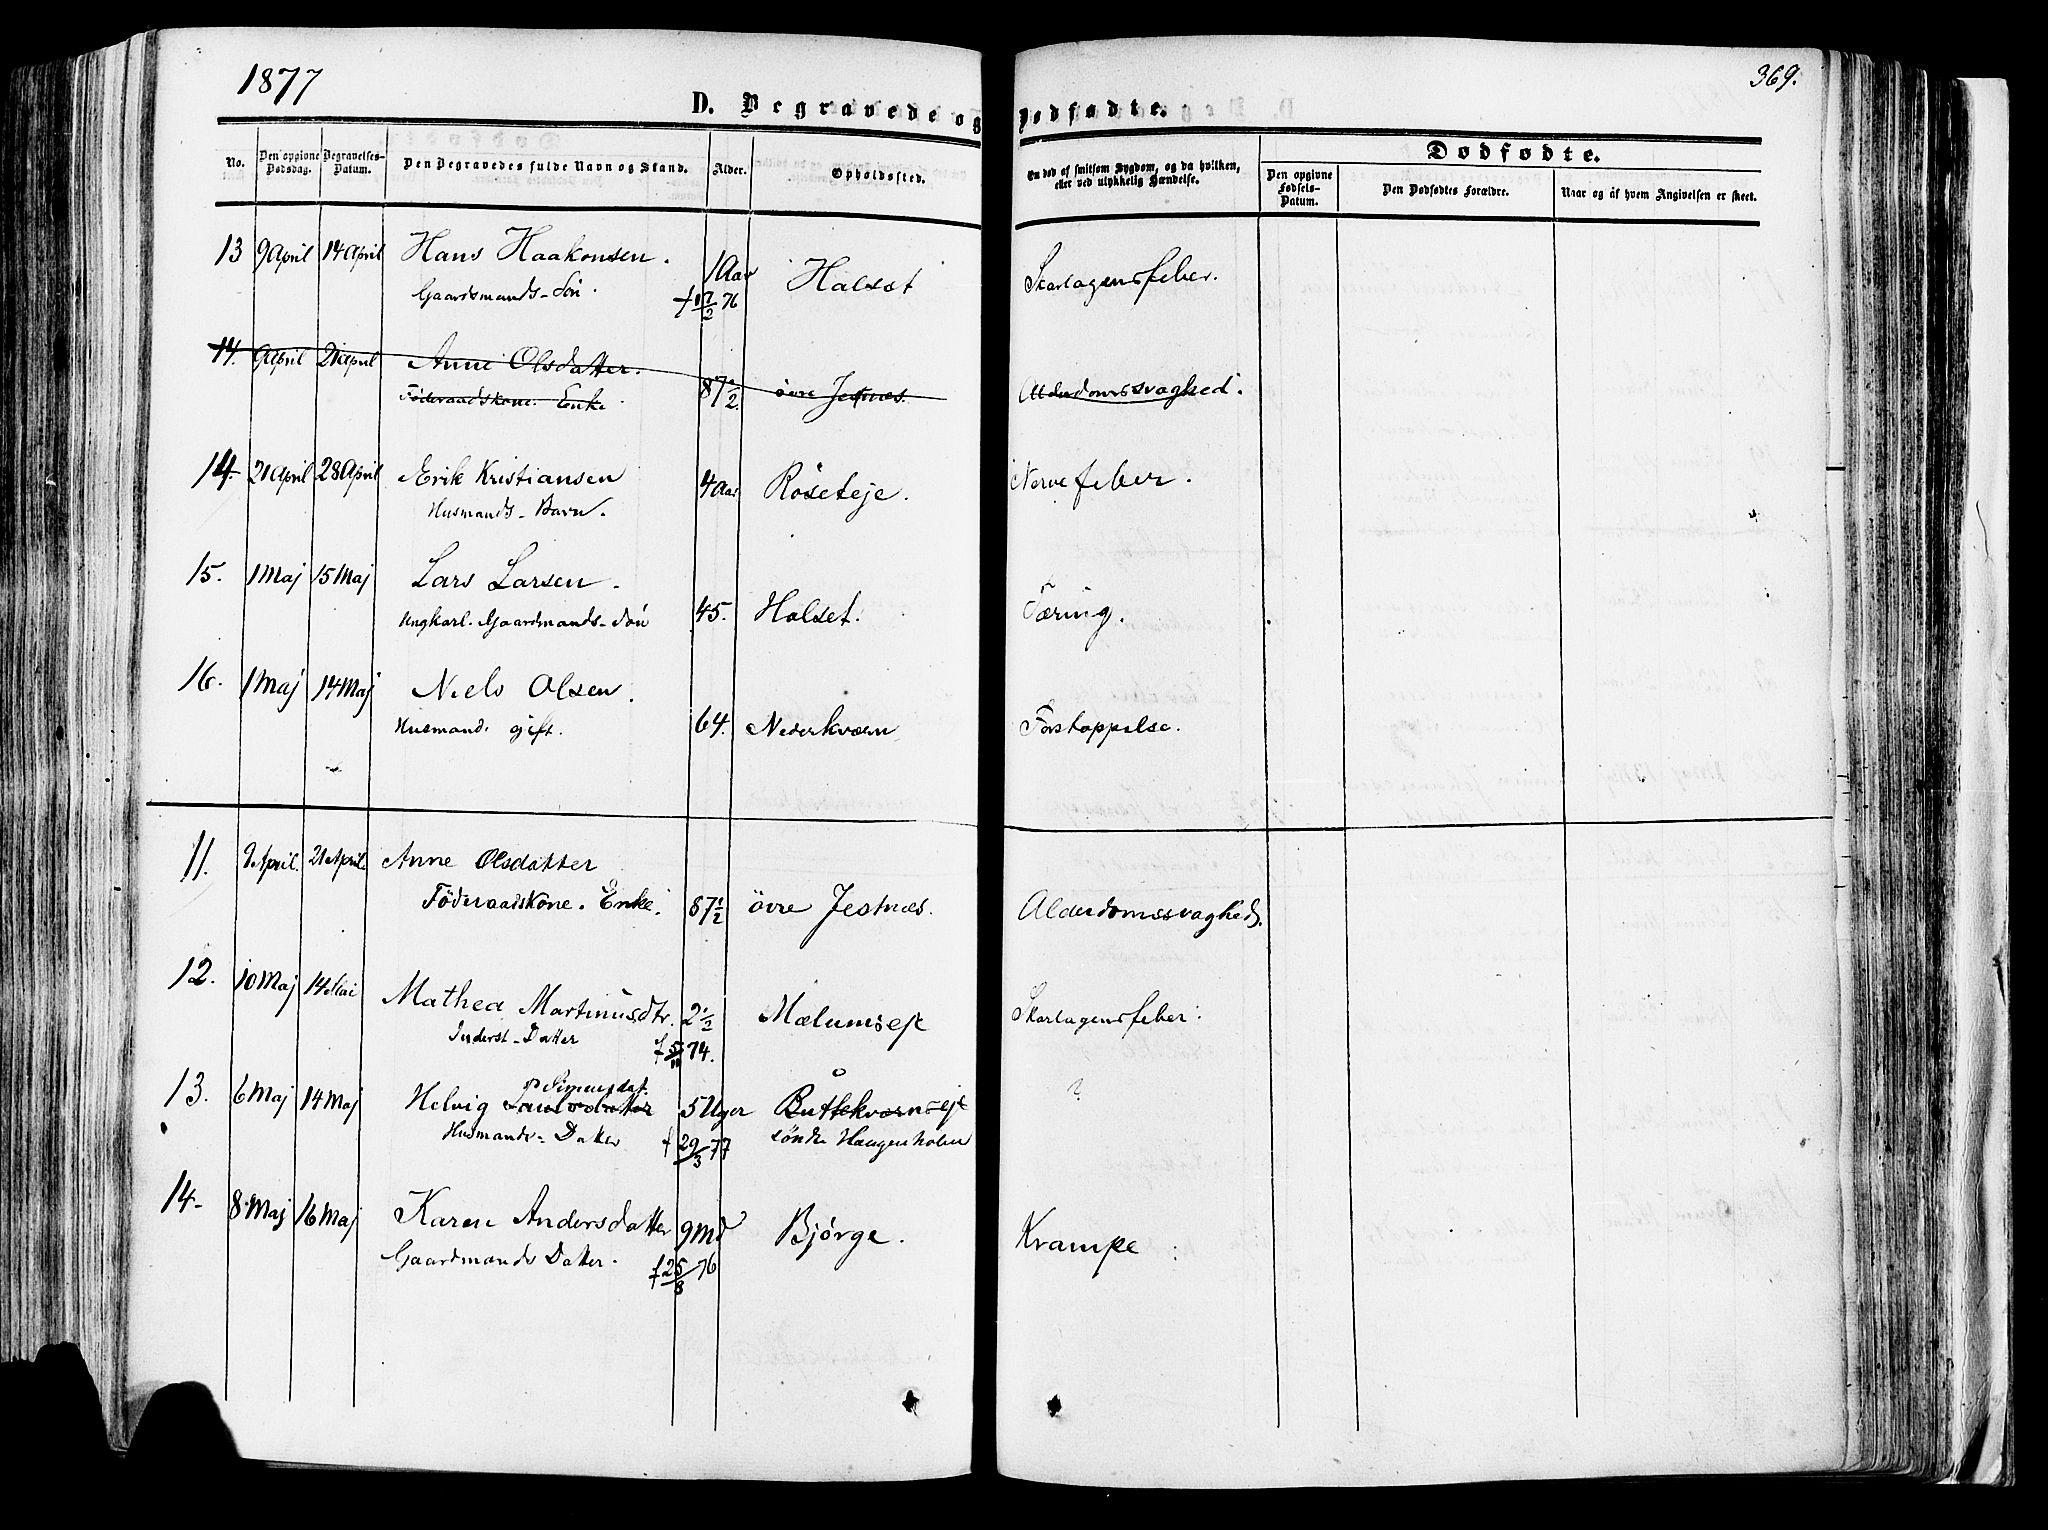 1877
369.
D. Begravede og Dødfødte.
No.
Den opgivne Dødsdag.
Begravelses-Datum.
Den Begravedes fulde Navn og Stand.
Alder.
Opholdssted.
En død af smitsom Sygdom, og da hvilken, eller ved ulykkelig Hændelse.
Dødfødte.
Den opgivne Fødsels-Datum.
Den Dødfødtes Forældre.
Naar og af hvem Angivelsen er skeet.
13 9 April 14 April Hans Haakonsen. 1 Aar Halset Skarlagensfeber.
Gaardsmands-Søn. f 17/2 76
14. 9 April 21 April Anne Olsdatter. 87 1/2. øvre Jesnæs. Alderdomssvaghed.
Føderaadskone. Enke
14. 21 April 28 April Erik Kristiansen 4 Aar Röseteje. Nervefeber.
Husmands-Barn.
15. 1 Maj 15 Maj Lars Larsen. 45. Halset. Tæring.
Ungkarl. Gaardmands-Søn
16. 1 Maj 14 Maj Niels Olsen. 64. Nederkværn Forstoppelse.
Husmand. gift.
11. 9 April. 21 April. Anne Olsdatter 87 1/2 øvre Jesnæs. Alderdomssvaghed.
Föderaadskone. Enke.
12. 10 Maj 14 Mai Mathea Martinusdtr. 2 1/2 Mælumseje Skarlagensfeber.
Inderst-Datter f 5/11 74.
Simensdat.
13. 6 Maj 14 Maj Helvig 5 Uger Buttekværnseje ?
Husmands-Datter f 29/3 77 søndre Haugenholen
14- 8 Maj 16 Maj Karen Andersdatter 9 Md Bjørge. Krampe
Gaardmands Datter. f 25/8 76